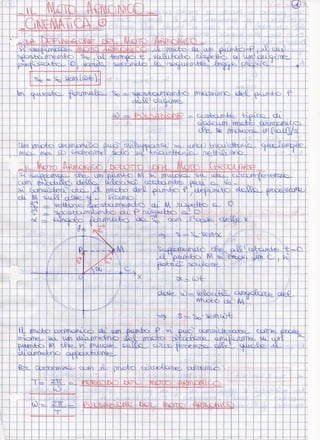 IL MOTO ARMONICO
CINEMATICA
LA DEFINIZIONE DEL MOTO ARMONICO
Si definisce MOTO ARMONICO il moto di un punto P, il cui
spostamento al tempo t valutato rispetto a un'origine
prefissata O varia secondo la seguente legge oraria:
In questa formula S₀ = spostamento massimo del punto P
dall'origine
ω = PULSAZIONE = costante tipica di
ciascun moto armonico
che si misura in [rad]/s
Un moto armonico può svilupparsi su una traiettoria qualunque
ma noi lo vedremo solo su traiettoria rettilinea
IL MOTO ARMONICO DEDOTTO DAL MOTO CIRCOLARE
Si supponga che un punto M si muova su una circonferenza
con modulo della velocità costante pari a V₀
si consideri ora il moto del punto P dato dalla proiezione
di M sull'asse y siano
S₀ = vettore spostamento di M rispetto a O
S = spostamento di P rispetto a O
α = angolo formato da S₀ con l'asse delle x
P
M
α
C
x
⇒ S = S₀ senα
Supponendo che all'istante t=0
il punto M si trovi in C, si
potrà scrivere
α = ωt
dove ω = velocità angolare del
moto di M
⇒ S = S₀ senωt
Il moto armonico di un punto P si può considerare come proie
zione su un diametro del moto circolare uniforme di un
punto M che si muove sulla circonferenza alla quale il
diametro appartiene
T = 2π/ω = PERIODO DEL MOTO ARMONICO
ω = 2π/T = PULSAZIONE DEL MOTO ARMONICO